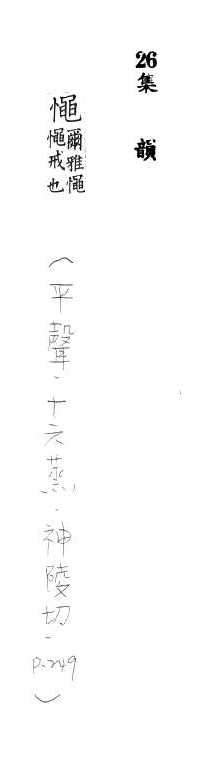 26集韻
憴
爾雅憴
憴戒也
(平聲.十六蒸.神陵切.p.249)